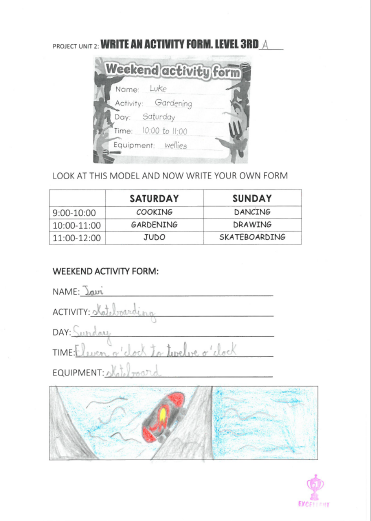 PROJECT UNIT 2: WRITE AN ACTIVITY FORM. LEVEL 3RD A
Weekend activity form
Name: Luke
Activity: Gardening
Day: Saturday
Time: 10:00 to 11:00
Equipment: wellies
LOOK AT THIS MODEL AND NOW WRITE YOUR OWN FORM
SATURDAY SUNDAY
9:00-10:00 COOKING DANCING
10:00-11:00 GARDENING DRAWING
11:00-12:00 JUDO SKATEBOARDING
WEEKEND ACTIVITY FORM:
NAME: Javi
ACTIVITY: skateboarding
DAY: Sunday
TIME: Eleven o'clock to twelve o'clock
EQUIPMENT: skateboard
EXCELLENT